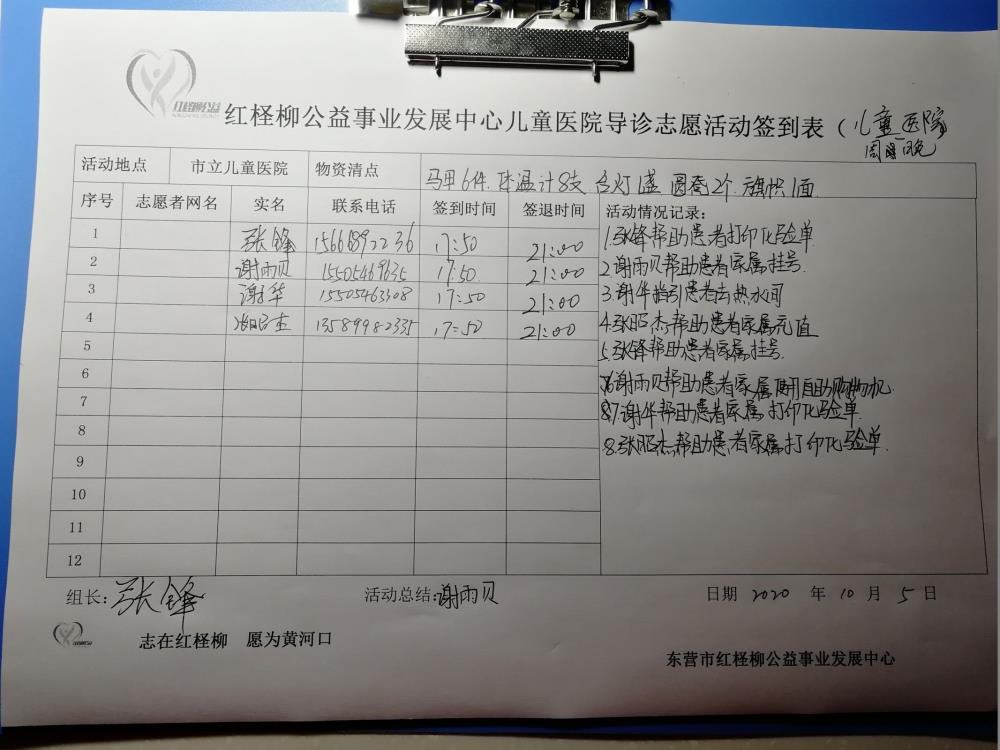 红柽柳公益
红柽柳公益事业发展中心儿童医院导诊志愿活动签到表（儿童医院
活动地点 市立儿童医院 物资清点 马甲6件 体温计8支 台灯1盏 圆凳2个 旗帜1面
序号 志愿者网名 实名 联系电话 签到时间 签退时间 活动情况记录:
1 张锋 15668922236 17:50 21:00 1.张锋帮助患者打印化验单
2 谢雨贝 15505469635 17:50 21:00 2.谢雨贝帮助患者家属挂号
3 谢华 15505463308 17:50 21:00 3.谢华指引患者去热水间
4 张昭杰 13589982335 17:50 21:00 4.张昭杰帮助患者家属充值
5 5.张锋帮助患者家属挂号.
6 6谢雨贝帮助患者家属使用自助购物机.
7 7.谢华帮助患者家属打印化验单
8 8.张昭杰帮助患者家属打印化验单.
9
10
11
12
组长:张锋 活动总结:谢雨贝 日期 2020 年 10 月 5 日
志在红柽柳 愿为黄河口
东营市红柽柳公益事业发展中心